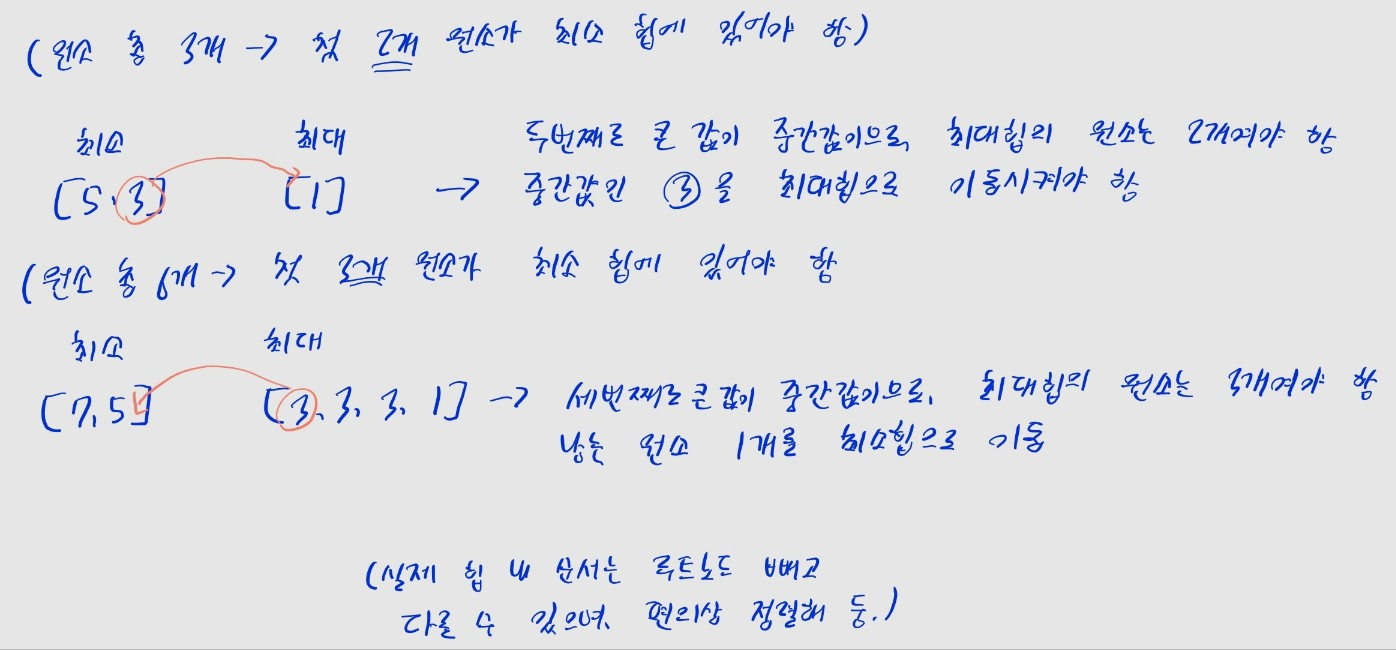 (원소 총 3개 -> 첫 2개 원소가 최소 힙에 있어야 함)
최소 최대 두번째로 큰 값이 중간값이므로, 최대힙의 원소는 2개여야 함
[5, 3] [1] -> 중간값인 ③을 최대힙으로 이동시켜야 함
(원소 총 6개 -> 첫 3개 원소가 최소 힙에 있어야 함
최소 최대
[7, 5] [3, 3, 3, 1] -> 세번째로 큰 값이 중간값이므로, 최대힙의 원소는 3개여야 함
남는 원소 1개를 최소힙으로 이동
(실제 힙 내 순서는 루트노드 빼고
다를 수 있으며, 편의상 정렬해 둠.)